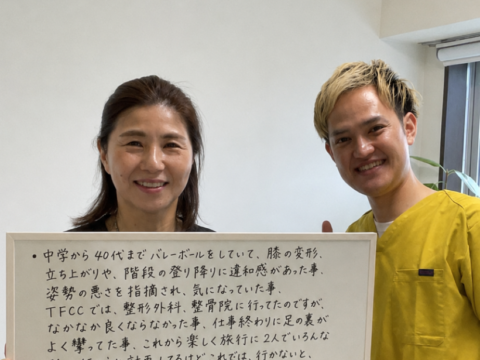 ・中学から40代までバレーボールをしていて、膝の変形、
立ち上がりや、階段の登り降りに違和感があった事、
姿勢の悪さを指摘され、気になっていた事、
TFCCでは、整形外科、整骨院に行ってたのですが、
なかなか良くならなかった事、仕事終わりに足の裏が
よく攣ってた事、これから楽しく旅行に2人でいろんな
これでは、行かないと、